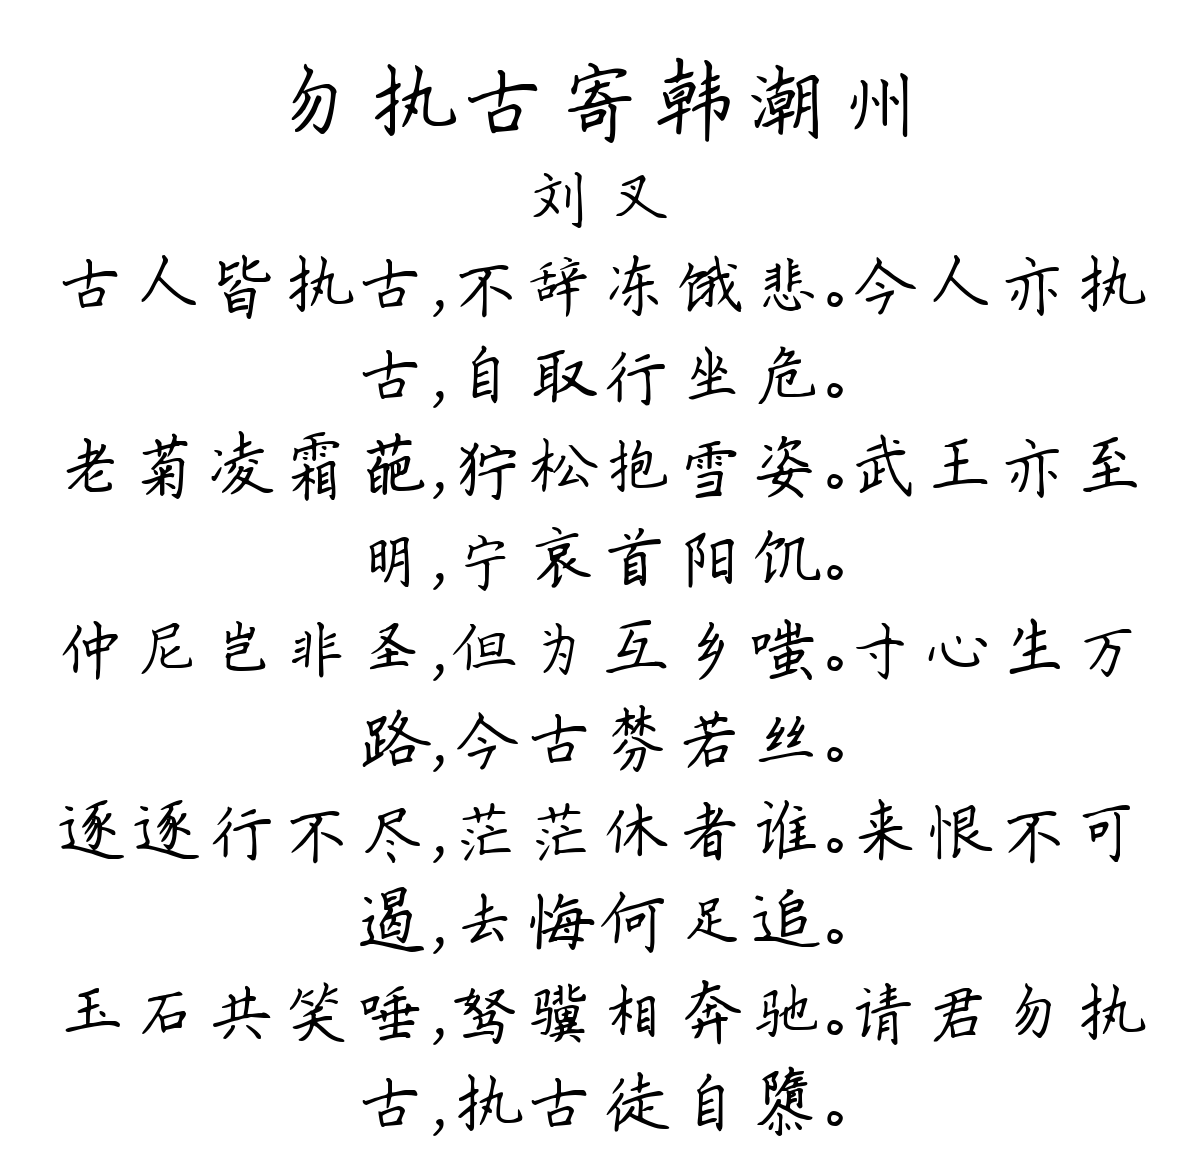 勿执古寄韩潮州
刘叉
古人皆执古,不辞冻饿悲。今人亦执
古,自取行坐危。
老菊凌霜葩,狞松抱雪姿。武王亦至
明,宁哀首阳饥。
仲尼岂非圣,但为互乡嗤。寸心生万
路,今古棼若丝。
逐逐行不尽,茫茫休者谁。来恨不可
遏,去悔何足追。
玉石共笑唾,驽骥相奔驰。请君勿执
古,执古徒自隳。